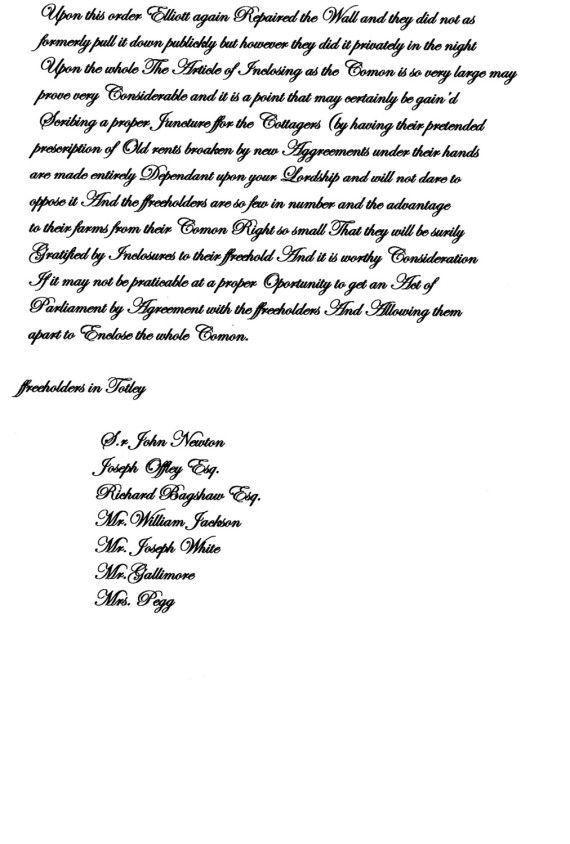 Upon this order Elliott again Repaired the Wall and they did not as
formerly pull it down publickly but however they did it privately in the night
Upon the whole The Article of Inclosing as the Comon is so very large may
prove very Considerable and it is a point that may certainly be gain'd
Scribing a proper Juncture ffor the Cottagers (by having their pretended
prescription of Old rents broaken by new Aggreements under their hands
are made entirely Dependant upon your Lordship and will not dare to
oppose it And the ffreeholders are so few in number and the advantage
to their farms from their Comon Right so small That they will be surily
Gratified by Inclosures to their ffreehold And it is worthy Consideration
If it may not be praticable at a proper Oportunity to get an Act of
Parliament by Agreement with the ffreeholders And Allowing them
apart to Enclose the whole Comon.
ffreeholders in Totley
S.r John Newton
Joseph Offley Esq.
Richard Bagshaw Esq.
Mr. William Jackson
Mr. Joseph White
Mr. Gallimore
Mrs. Pegg